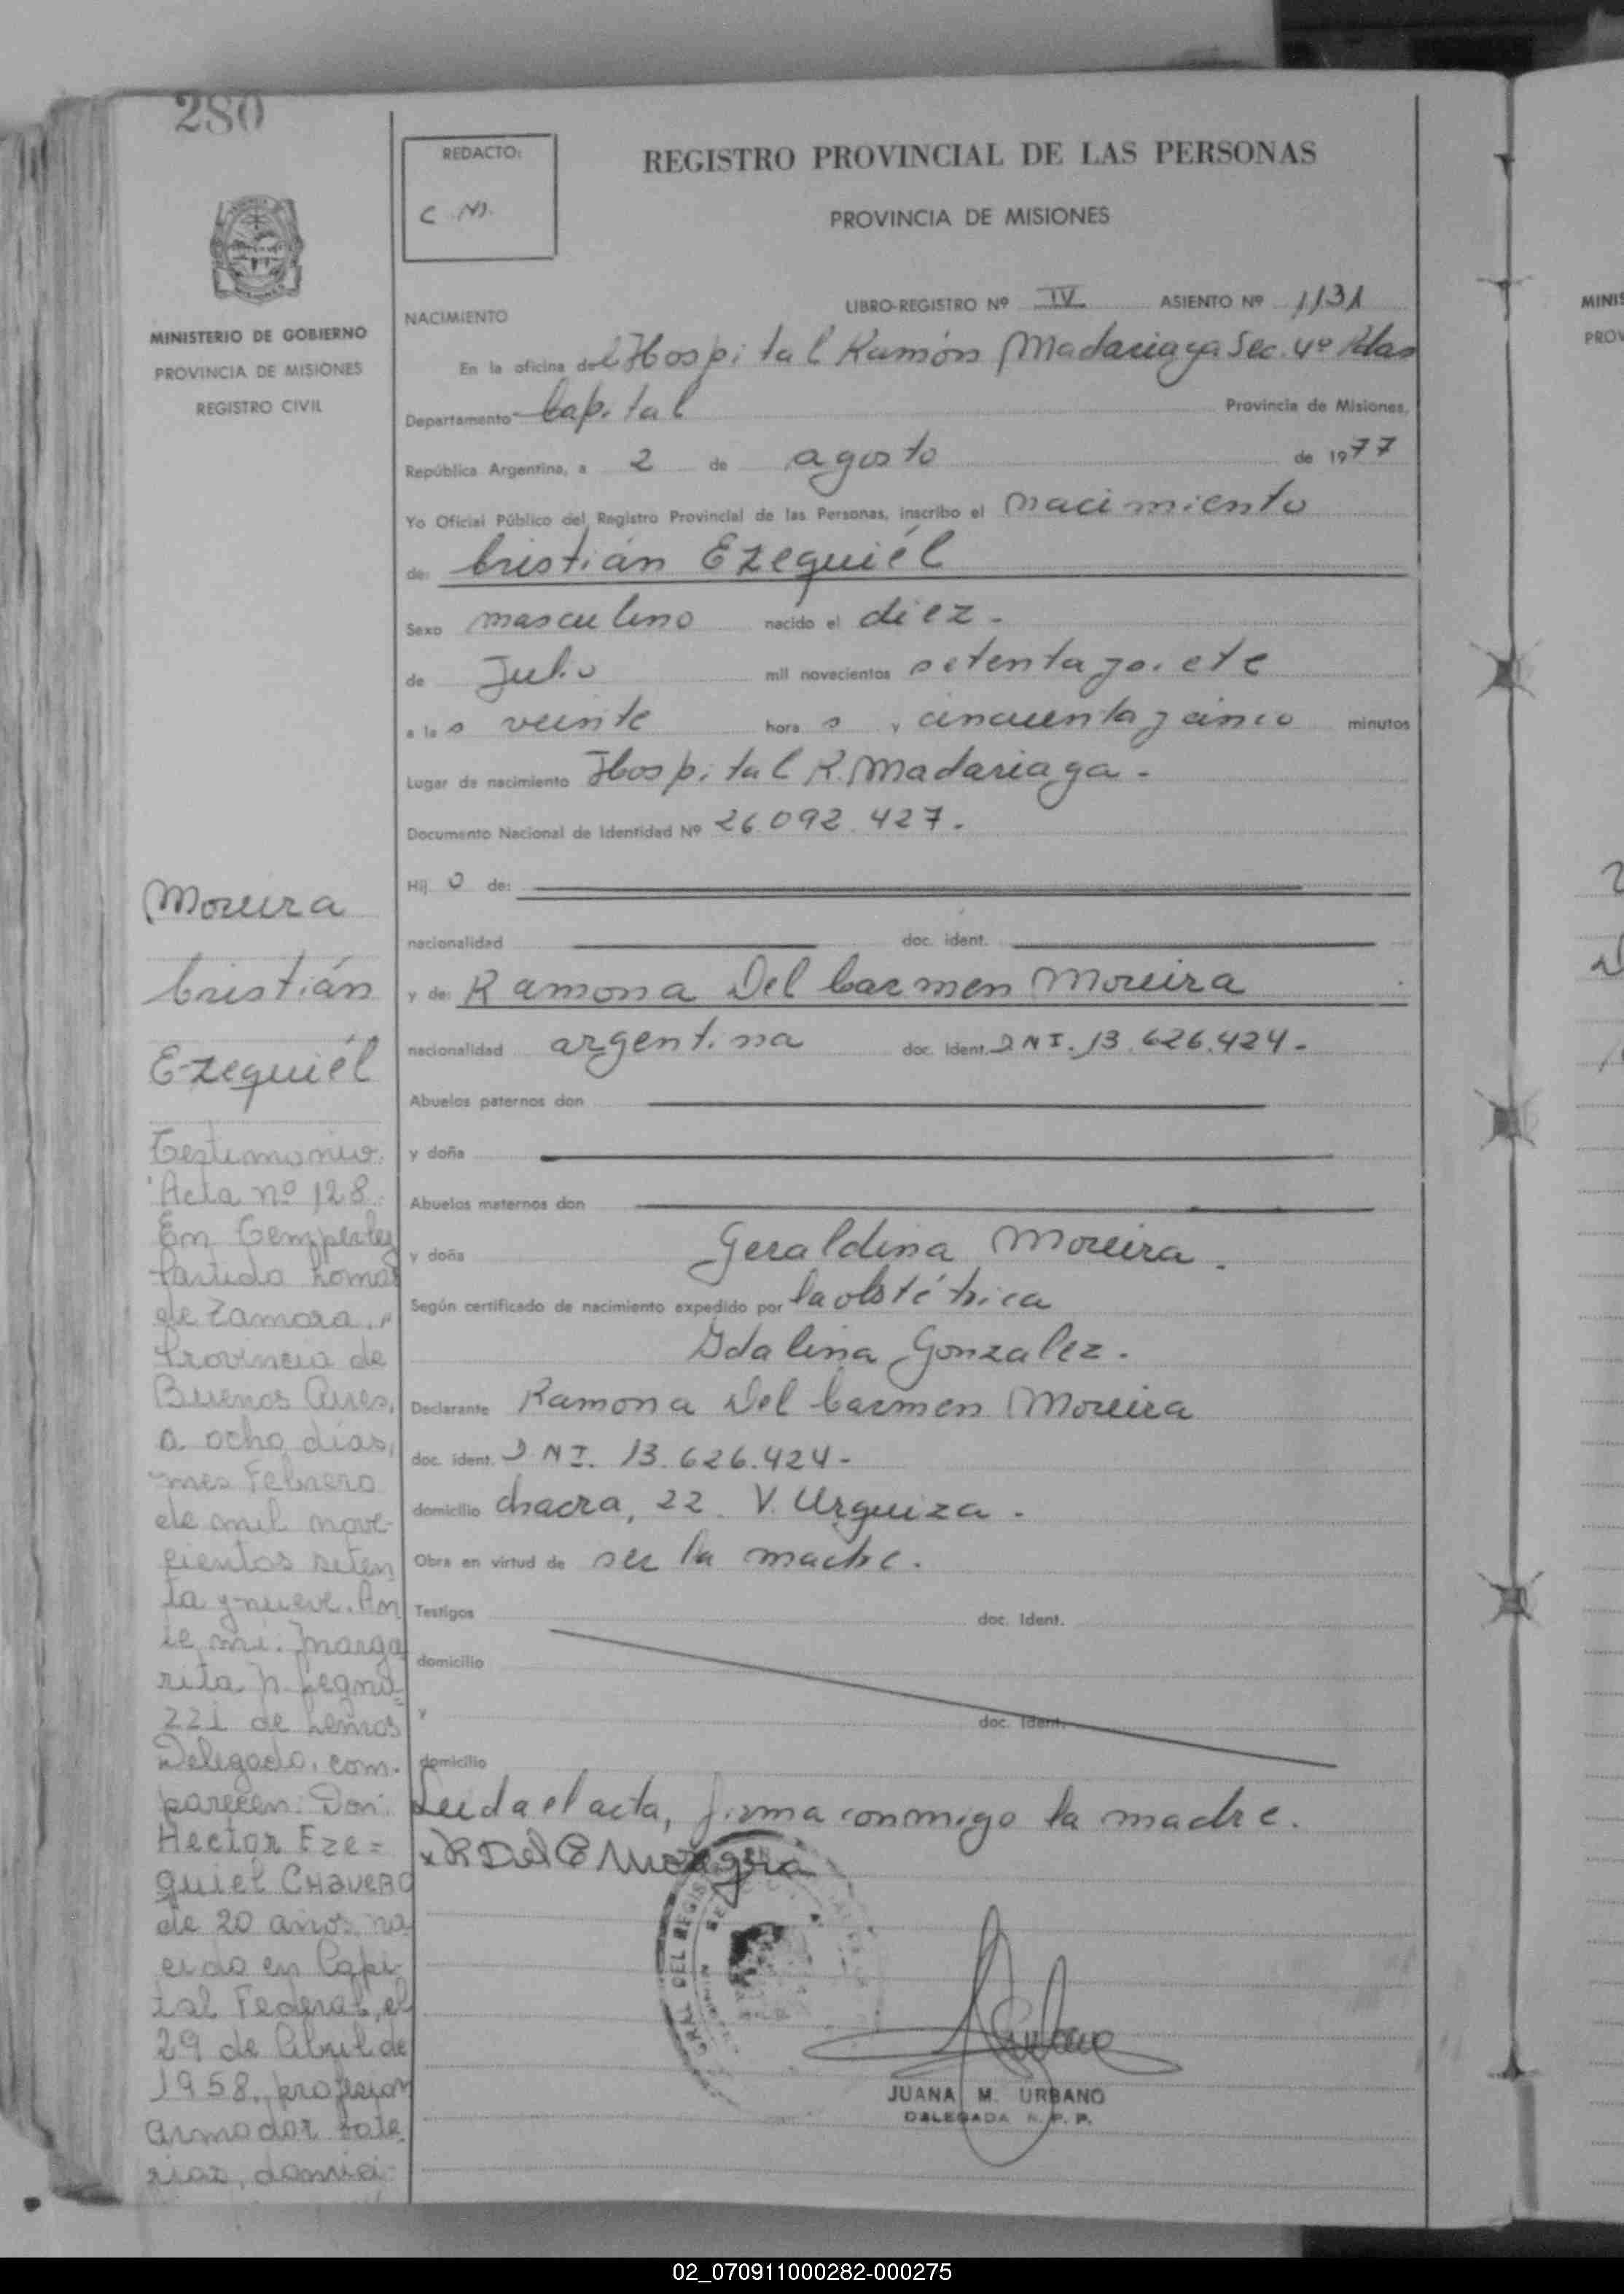 280
REDACTO:
C. N.
REGISTRO PROVINCIAL DE LAS PERSONAS
PROVINCIA DE MISIONES
MINISTERIO DE GOBIERNO
PROVINCIA DE MISIONES
REGISTRO CIVIL
NACIMIENTO
LIBRO-REGISTRO Nº IV ASIENTO Nº 1131
En la oficina del Hospital Ramón Madariaga Sec. 4º Pdas
Departamento Capital Provincia de Misiones,
República Argentina, a 2 de agosto de 1977
Yo Oficial Público del Registro Provincial de las Personas, inscribo el nacimiento
de: Cristián Ezequiél
Sexo masculino nacido el diez.
de Julio mil novecientos setenta y siete
a las veinte horas y cincuenta y cinco minutos
Lugar de nacimiento Hospital R. Madariaga.
Documento Nacional de Identidad Nº 26.092.427.
Hijo de:
nacionalidad doc. ident.
y de: Ramona Del Carmen Moreira
nacionalidad argentina doc. Ident. DNI. 13.626.424.
Abuelos paternos don
y doña
Abuelos maternos don
y doña Geraldina Moreira.
Según certificado de nacimiento expedido por la obstétrica
Idalina Gonzalez.
Declarante Ramona Del Carmen Moreira
doc. ident. DNI. 13.626.424-
domicilio chacra, 22 V. Urquiza.
Obra en virtud de ser la madre.
Testigos doc. Ident.
domicilio
y doc. Ident.
domicilio
Leida el acta, firma conmigo la madre.
JUANA M. URBANO
DELEGADA R. P. P.
Moreira
Cristián
Ezequiél
Testimonio.
Acta nº 128.
En Temperley
Partido Lomas
de Zamora,
Provincia de
Buenos Aires,
a ocho días,
mes Febrero
de mil nove-
cientos seten
ta y nueve. An
te mi: Marga
rita
de Lemos
Delegado, com-
parecen: Don:
Hector Eze=
quiel CHAVERO
de 20 años, na
cido en Capi-
tal Federal, el
29 de Abril de
1958, profesion
armador bate
rias, domici-
02_070911000282-000275